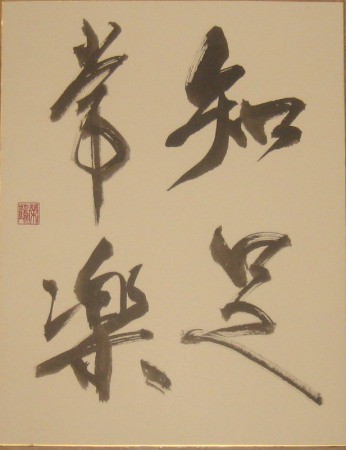 知足
常楽